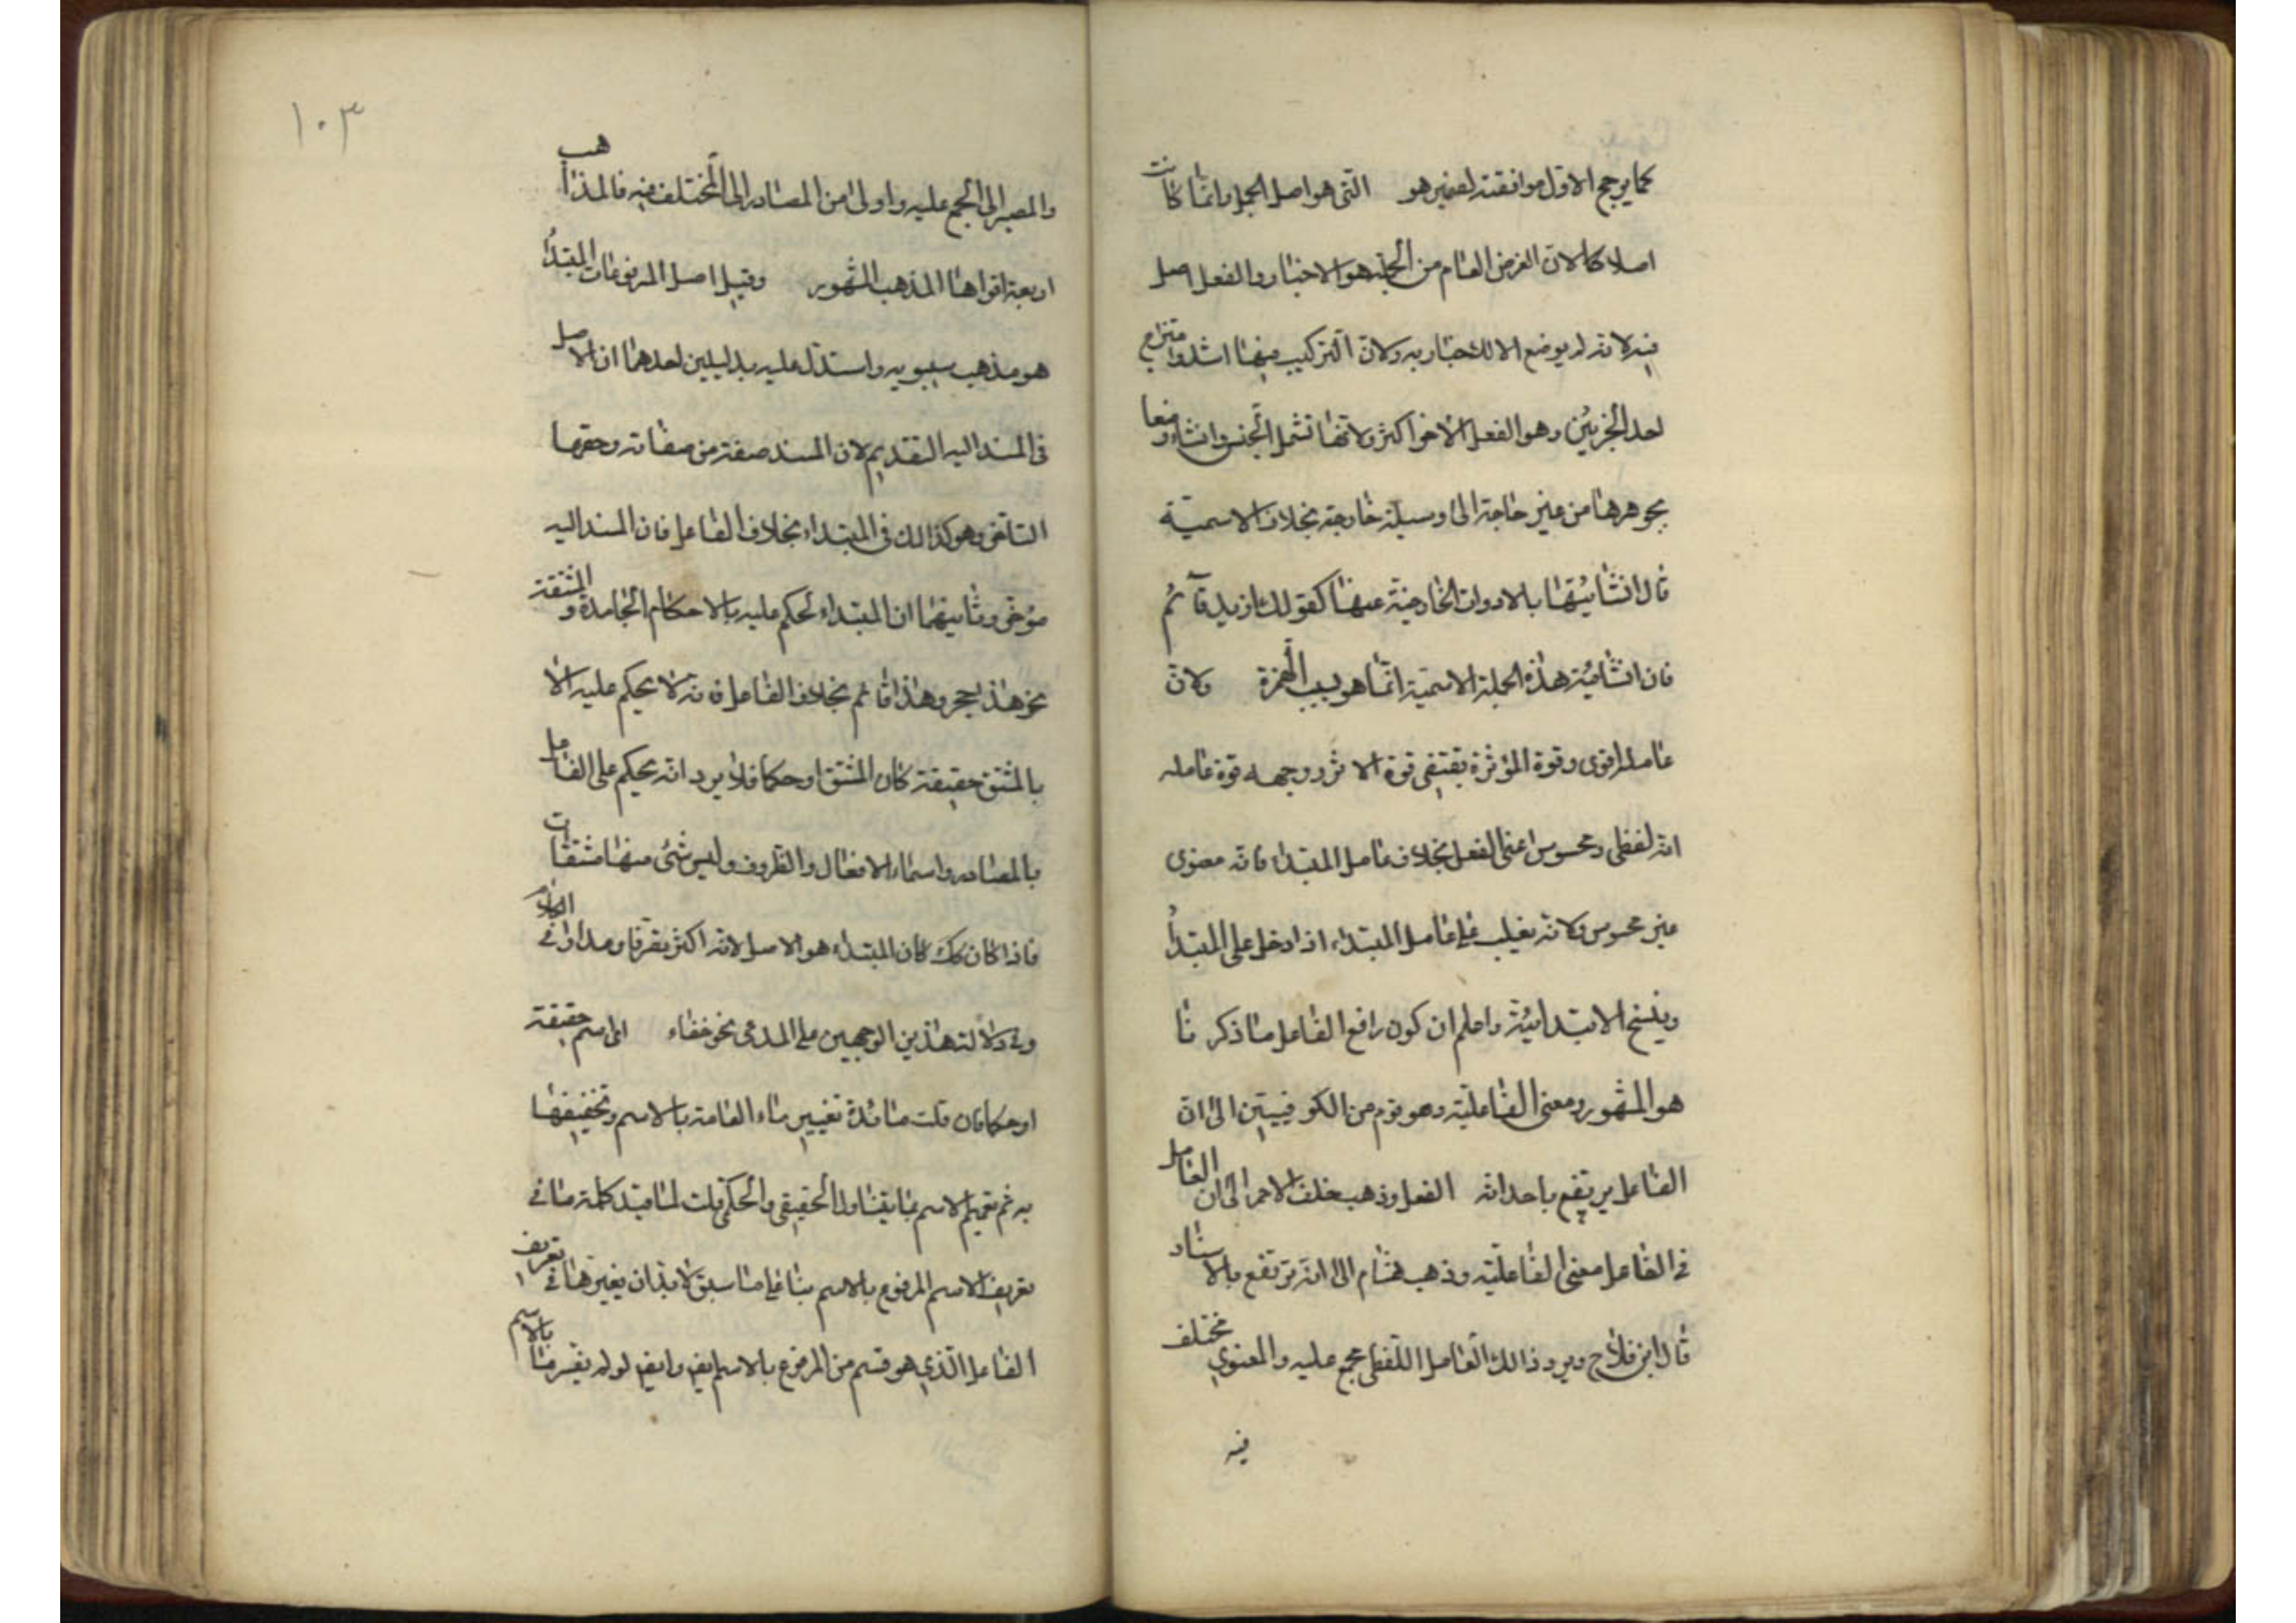 كما يرجح الاول موافقته لغيره هو التى هو اصل الجمل وانما كانت
اصلا كالان الغرض العام من الجملة هو الاخبار والفعل اصل
فيه لانه لم يوضع الا للاخبار به ولان التركيب فيها اشد وامتزاج
احد الجزئين وهو الفعل الاخر اكثر ولانها تشمل الجنس وانشاء وضعا
بجوهرها من غير حاجة الى وسيلة خارجة بخلاف الاسمية
قال انشائيتها بالادوات الخارجية عنها كقولك ازيد قآئم
فان انشائية هذه الجملة الاسمية انما هو بسبب الهمزة ولان
عامله اقوى وقوة المؤثرة يقتضى قوة الاثر ووجهه قوة عامله
انه لفظى ومحسوس اعنى الفعل بخلاف عامل المبتداء فانه معنوى
غير محسوس ولانه يغلب على عامل المبتداء اذا دخل على المبتدأ
وينسخ الابتدائية واعلم ان كون رافع الفاعل ما ذكر نا
هو المشهور ومعنى الفاعلية وهو قوم من الكوفيين الى ان
الفاعل يرتفع باحداثه الفعل وذهب خلف الاحمر الى ان العامل
فى الفاعل معنى الفاعلية وذهب هشام الى انه يرتفع بالاسناد
قال ابن فلاح ويرد ذالك العامل اللفظى مجمع عليه والمعنوي مختلف
فيه
١٠٣
والمصير الى المجمع عليه واولى من المصادر الى المختلف فيه فالمذاهب
اربعة اقواها المذهب المشهور وقيل اصل المرفوعات المبتدأ
هو مذهب سيبويه واستدل عليه بدليلين احدهما ان الاصل
فى المسند اليه التقديم لان المسند صفة من صفاته وحقها
التاخر وهو كذالك فى المبتداء بخلاف الفاعل فان المسند اليه
مؤخر وثانيهما ان المبتداء لحكم عليه بالاحكام الجامدة والمشتقة
نحو هذا حجر وهذا قائم بخلاف الفاعل فانه لا يحكم عليه الا
بالمشتق حقيقة كان المشتق او حكما فلا يرد انه يحكم على الفاعل
بالمصادر واسماء الافعال والظروف وليس شئ منها مشتقات
فاذا كان كك كان المبتداء هو الاصل لانه اكثر تصرفا ومداوا فى الكلام
وفى دلالة هذين الوجهين على المدعى نحو خفاء اى اسم حقيقة
او حكما فان قلت ما فائدة تغيير ماء العامة بالاسم وتخفيفها
به ثم تعميم الاسم بما يتناول الحقيقى والحكمى قلت لما قيد كلمة ما فى
تعريف الاسم المرفوع بالاسم بناء على ما سبق لا بد ان يغيرها فى تعريف
الفاعل الذي هو قسم من المرفوع بالاسم ايض وايض لو لم يفسر ما بالاسم